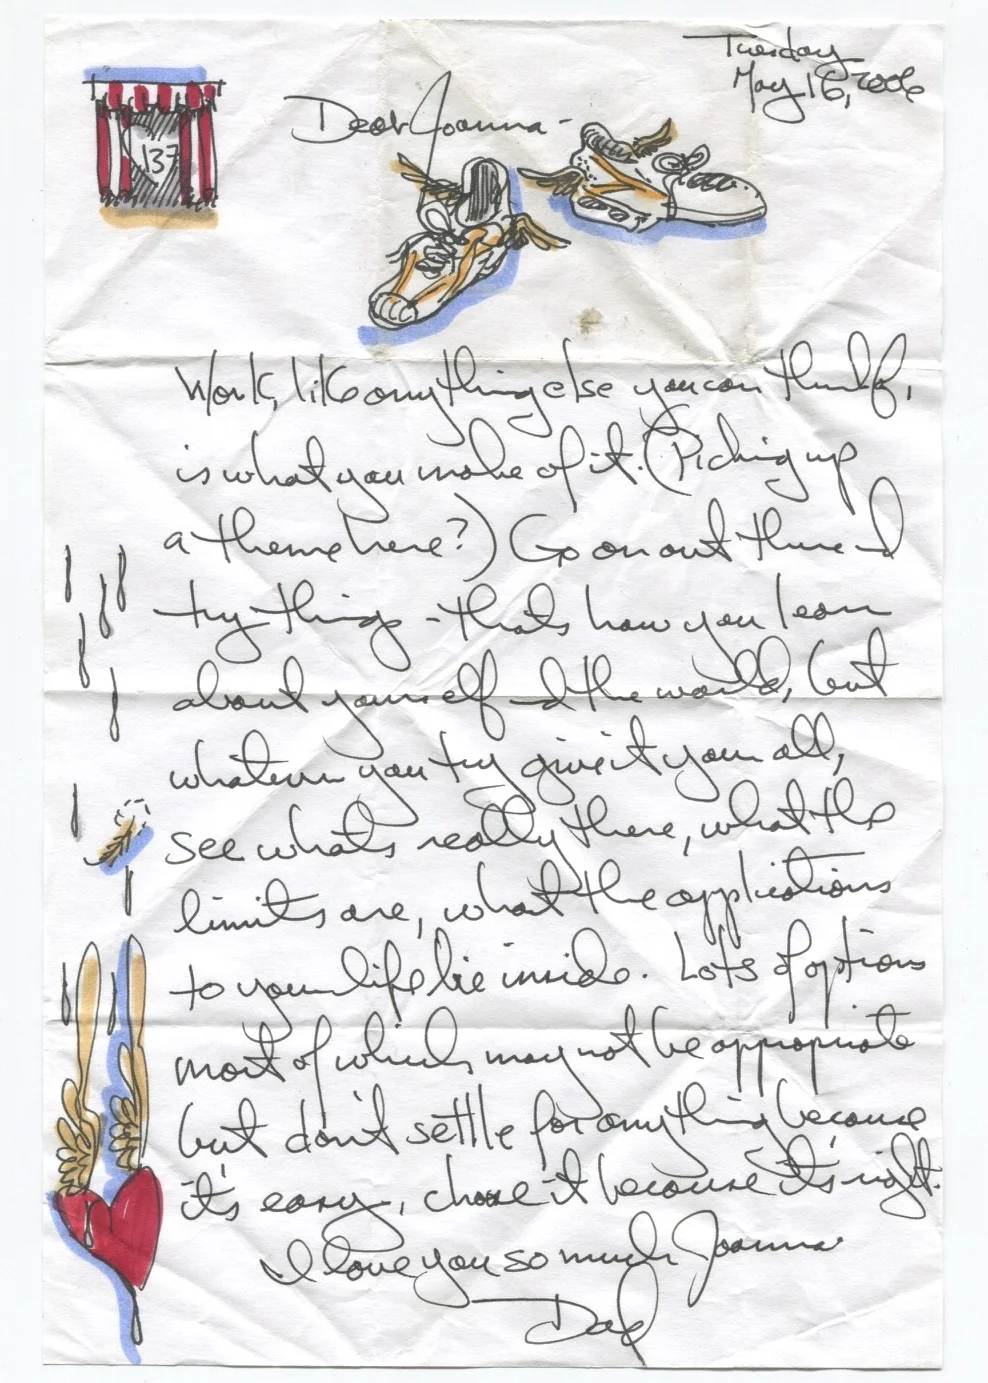 Tuesday
May 16, 2006
137
Dear Joanna -
Work, like anything else you can think of,
is what you make of it. (Picking up
a theme here?) Go on out there and
try things - that's how you learn
about yourself and the world, but
whatever you try give it your all,
see what's really there, what the
limits are, what the applications
to your life lie inside. Lots of options
most of which may not be appropriate
but don't settle for anything because
it's easy, chose it because it's right.
I love you so much Joanna
Dad